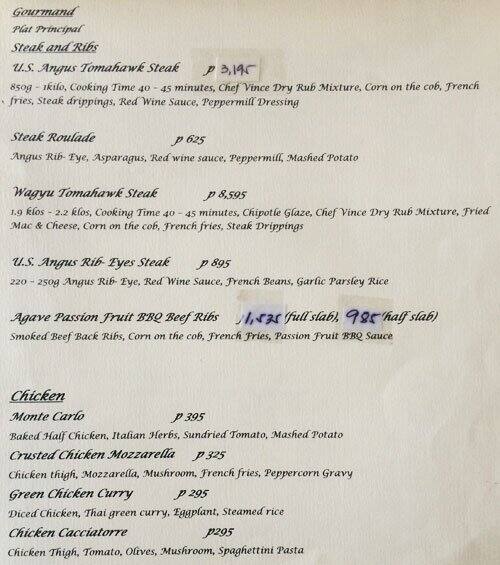 Gourmand
Plat Principal
Steak and Ribs
U.S. Angus Tomahawk Steak P 3,195
850g - 1kilo, Cooking Time 40 - 45 minutes, Chef Vince Dry Rub Mixture, Corn on the cob, French
fries, Steak drippings, Red Wine Sauce, Peppermill Dressing
Steak Roulade P 625
Angus Rib- Eye, Asparagus, Red wine sauce, Peppermill, Mashed Potato
Wagyu Tomahawk Steak P 8,595
1.9 klos - 2.2 klos, Cooking Time 40 - 45 minutes, Chipotle Glaze, Chef Vince Dry Rub Mixture, Fried
Mac & Cheese, Corn on the cob, French fries, Steak Drippings
U.S. Angus Rib- Eyes Steak P 895
220 - 250g Angus Rib- Eye, Red Wine Sauce, French Beans, Garlic Parsley Rice
Agave Passion Fruit BBQ Beef Ribs 1,535 (full slab), 985 (half slab)
Smoked Beef Back Ribs, Corn on the cob, French Fries, Passion Fruit BBQ Sauce
Chicken
Monte Carlo P 395
Baked Half Chicken, Italian Herbs, Sundried Tomato, Mashed Potato
Crusted Chicken Mozzarella P 325
Chicken thigh, Mozzarella, Mushroom, French fries, Peppercorn Gravy
Green Chicken Curry P 295
Diced Chicken, Thai green curry, Eggplant, Steamed rice
Chicken Cacciatorre P295
Chicken Thigh, Tomato, Olives, Mushroom, Spaghettini Pasta